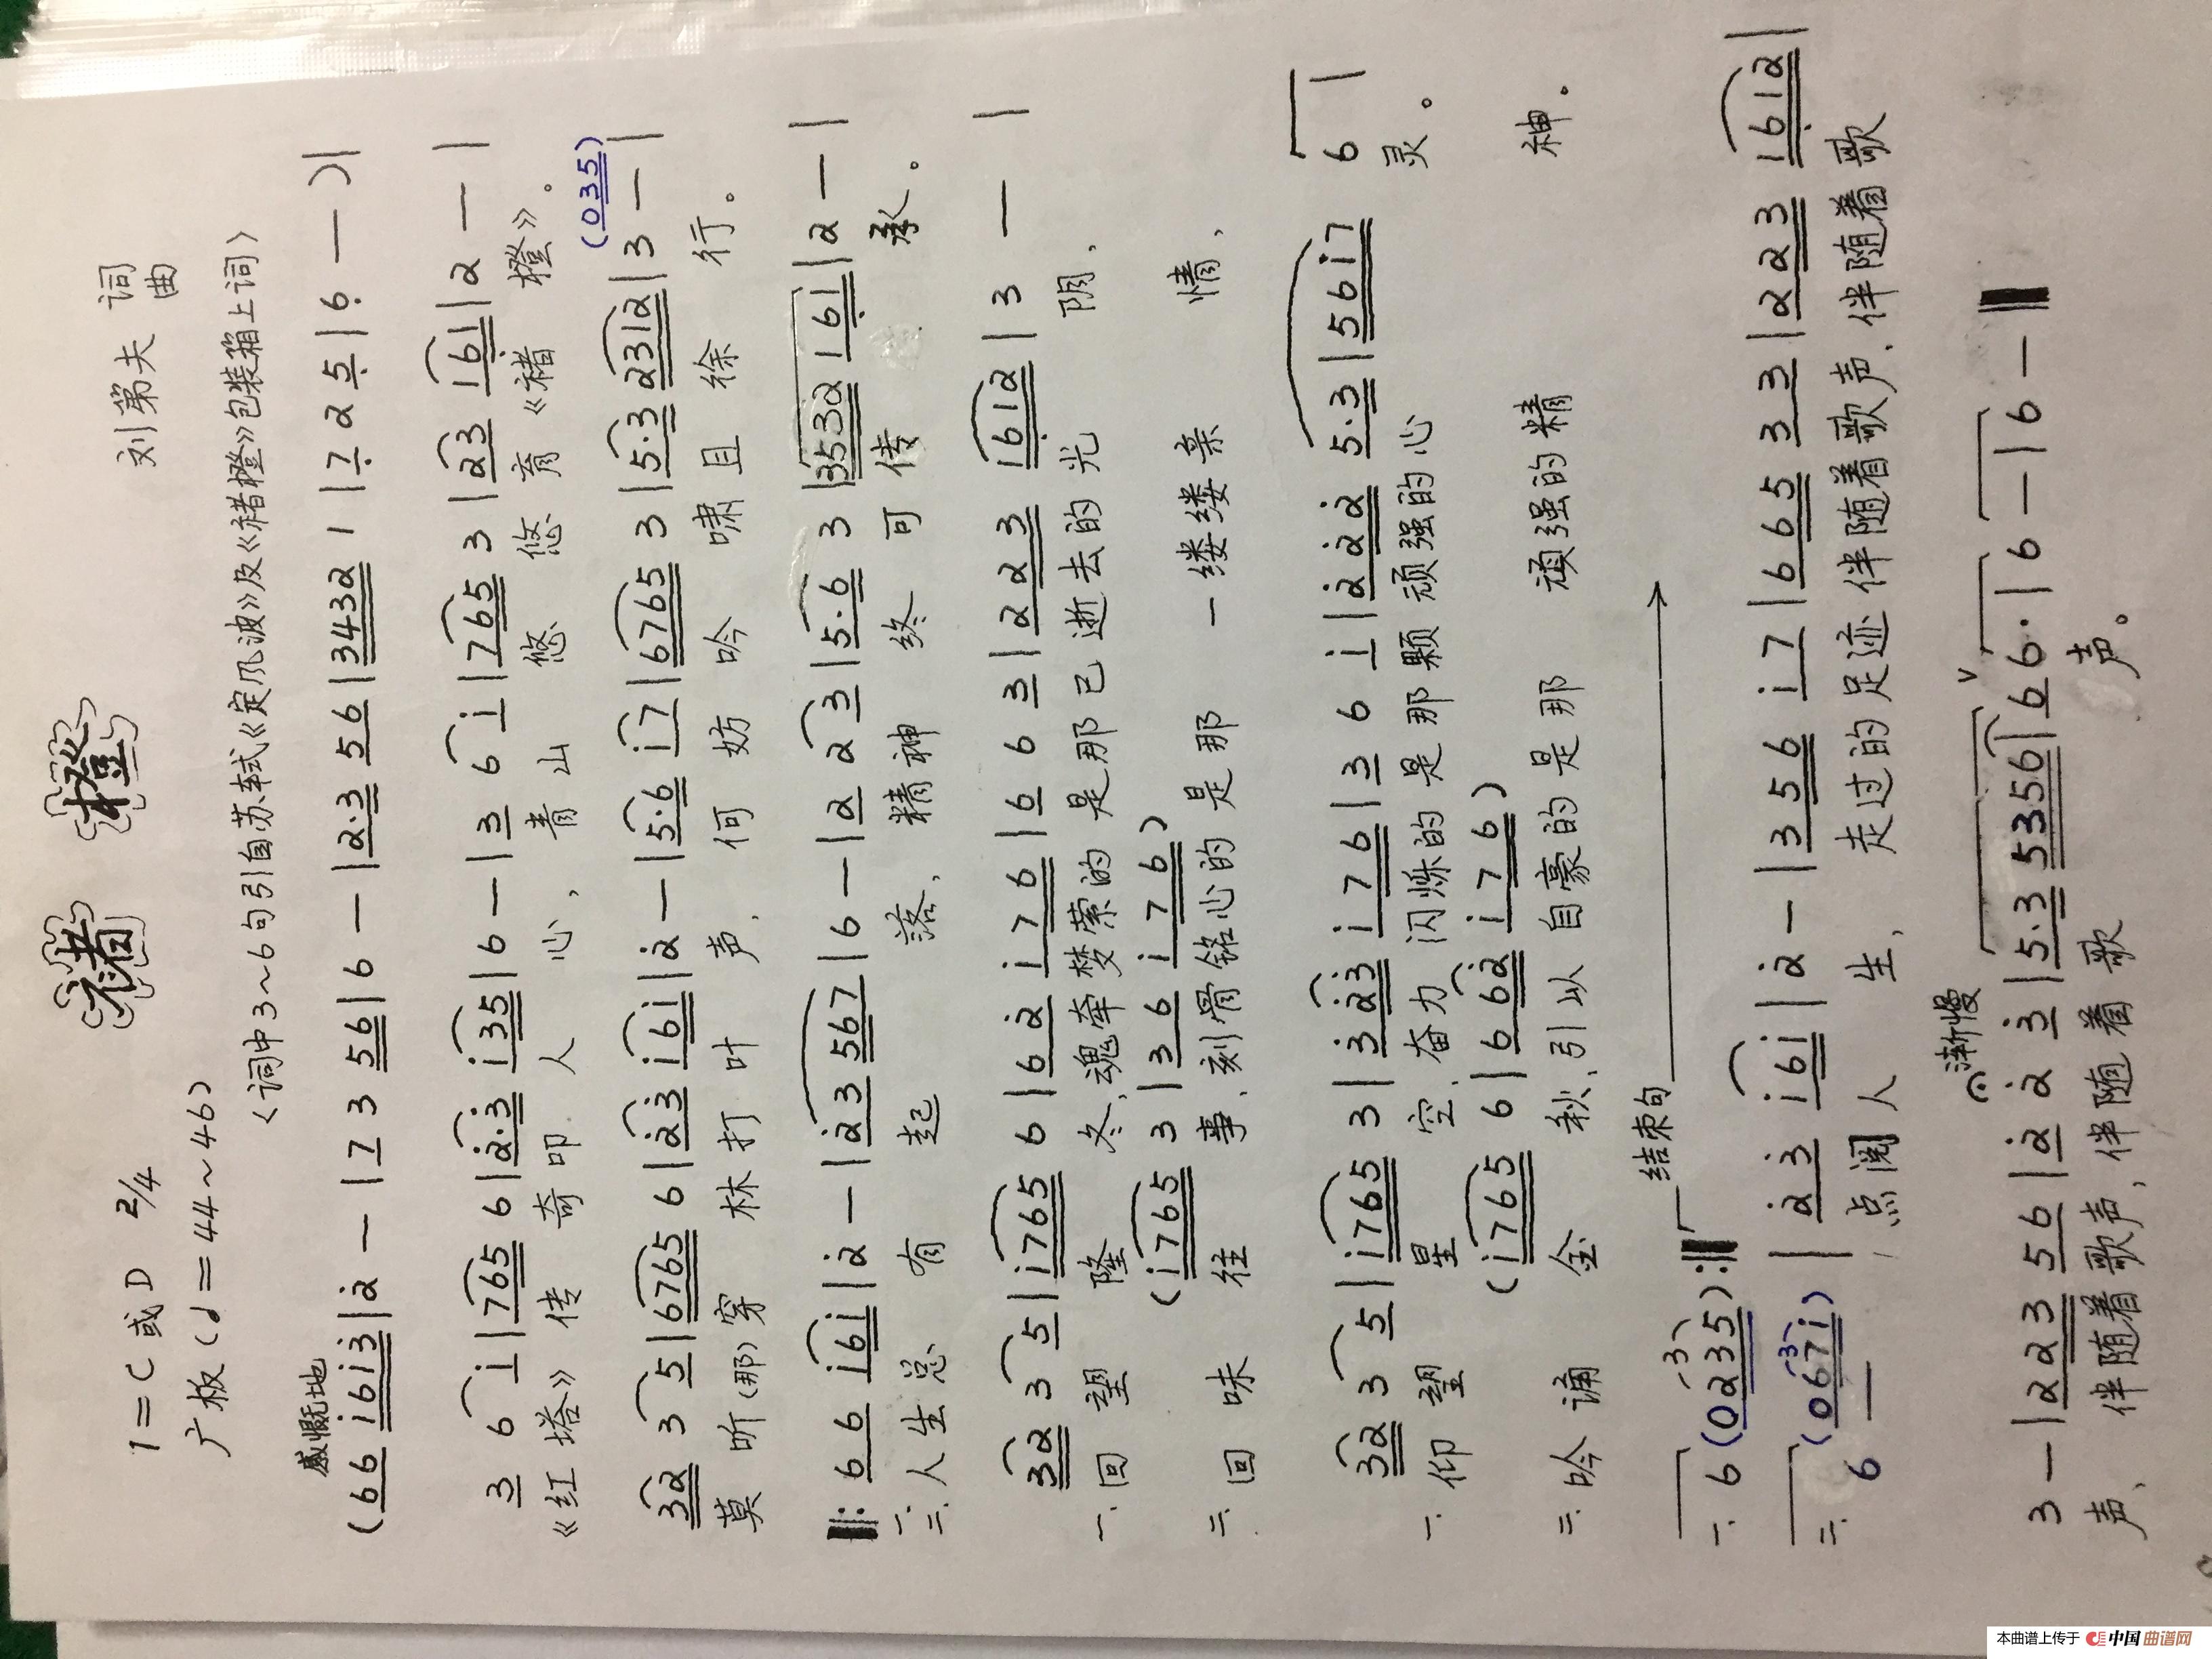 褚橙
1=C 或D 2/4 刘第夫 词曲
广板(♩=44~46)
<词中3~6句引自苏轼《定风波》及《褚橙》包装箱上词>
感慨地
(6 6 i6i3 | 2 — | 1 2 3 5 6 | 6 — | 2·3 5 6 | 3432 1 | 7 2 5 | 6 — ) |
3 6 i | 765 6 | 2·3 i35 | 6 — | 3 6 i | 765 3 | 23 161 | 2 — |
《红塔》传奇叩人心,青山悠悠育《褚橙》。
(035)
32 3 5 | 6765 6 | 23 i6i | 2 — | 5·6 i7 | 6765 3 | 5·3 2312 | 3 — |
莫听(那)穿林打叶声,何妨吟啸且徐行。
‖: 6 6 i6i | 2 — | 23 567 | 6 — | 2 2 3 | 5·6 3 | 3532 161 | 2 — |
一.二.人生总有起落,精神终可传承。
32 3 5 | i765 6 | 6 2 i 7 6 | 6 6 3 | 2 2 3 1612 | 3 — |
一.回望隆冬,魂牵梦萦的是那已逝去的光阴,
(i765 3 | 3 6 i 7 6)
二.回味往事,刻骨铭心的是那一缕缕亲情,
32 3 5 | i765 3 | 3 23 i 7 6 | 3 6 i | 2 2 2 5·3 | 56i7 6 |
一.仰望星空,奋力闪烁的是那颗顽强的心灵。
(i765 6 | 6 62 i 7 6)
二.吟诵金秋,引以自豪的是那顽强的精神.
结束句
一. 6 (0235) :‖
二. 6 — (067i) | 2 3 i6i | 2 — | 3 5 6 i 7 | 6 6 5 3 3 | 2 2 3 1612 |
点阅人生,走过的足迹伴随着歌声,伴随着歌
渐慢
3 — | 2 2 3 5 6 | 2 2 3 | 5·3 5356 | 6 6· | 6 — | 6 — ‖
声、伴随着歌声,伴随着歌声。
本曲谱上传于 中国曲谱网